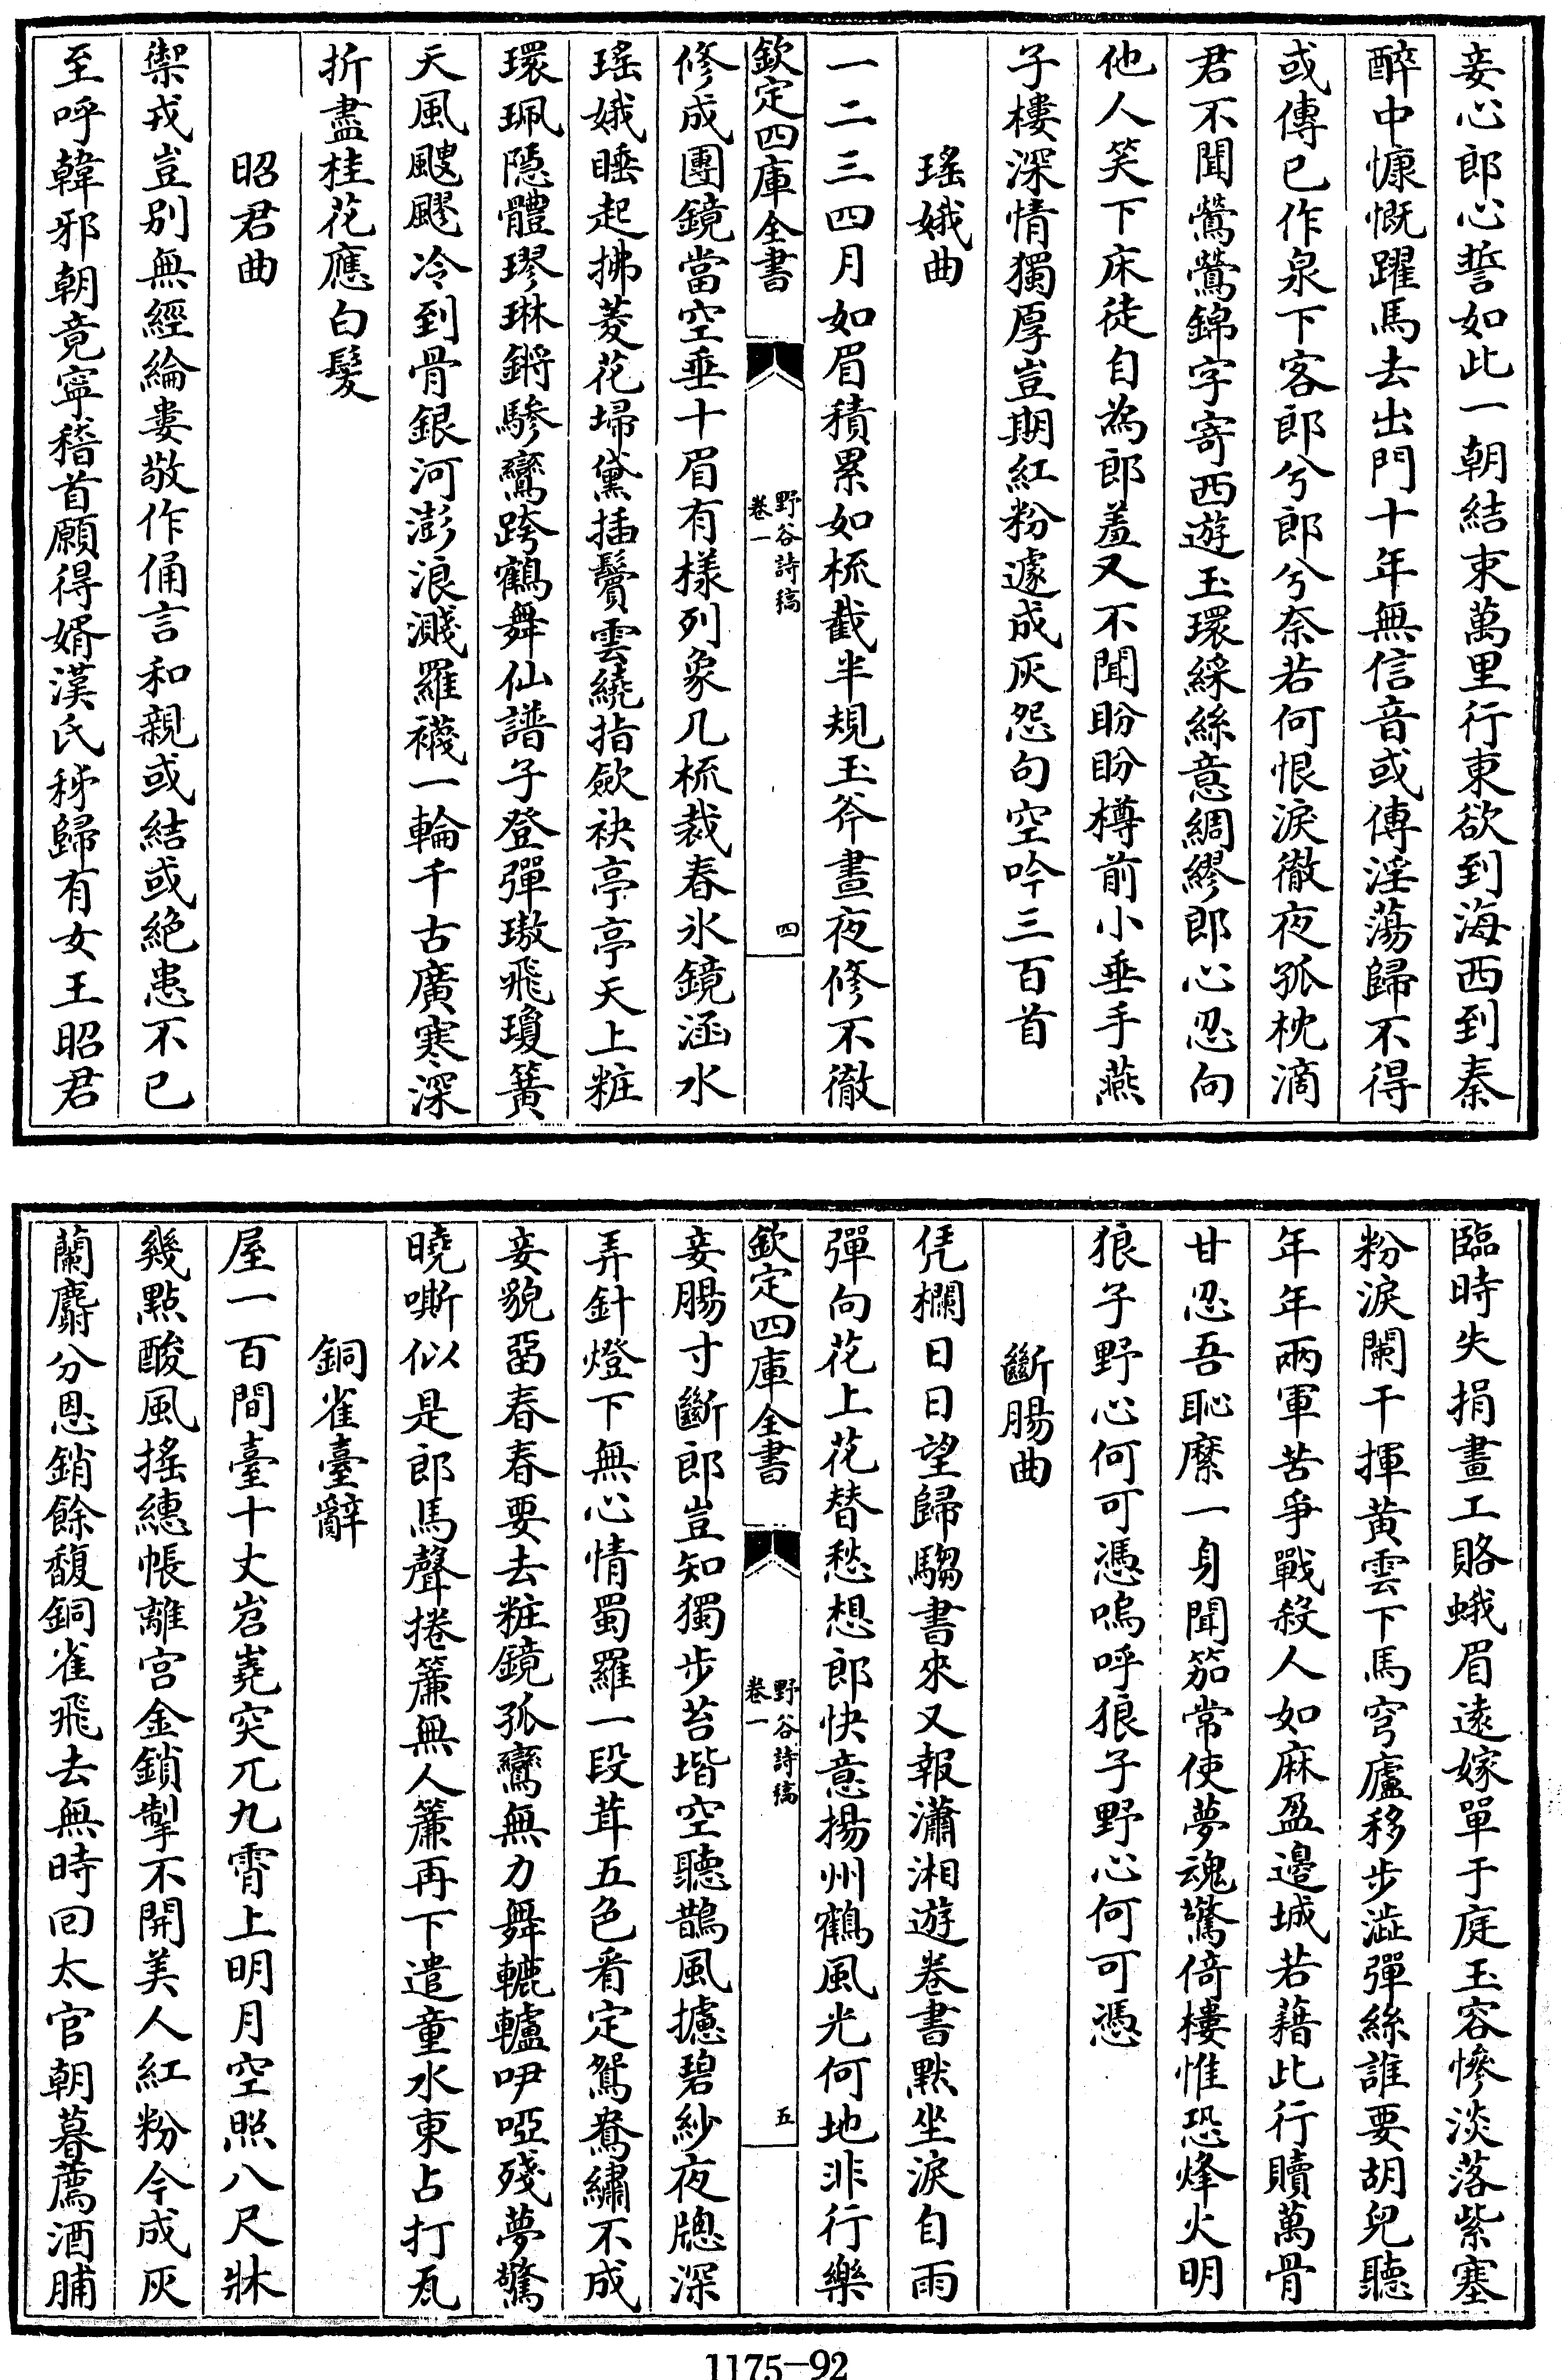 妾心郎心誓如此一朝結束萬里行東欲到海西到秦
醉中慷慨躍馬去出門十年無信音或傳淫蕩歸不得
或傳已作泉下客郎兮郎兮奈若何恨淚徹夜孤枕滴
君不聞鶯鶯錦字寄西遊玉環綵絲意綢繆郎心忍向
他人笑下床徒自為郎羞又不聞盼盼樽前小垂手燕
子樓深情獨厚豈期紅粉遽成灰怨句空吟三百首
瑤娥曲
一二三四月如眉積累如梳截半規玉斧晝夜修不徹
欽定四庫全書
野谷詩稿
卷一
四
修成團鏡當空垂十眉有樣列象几梳裁春氷鏡涵水
瑤娥睡起拂菱花埽黛插鬢雲繞指斂袂亭亭天上粧
環珮隱體璆琳鏘驂鸞跨鶴舞仙譜子登彈璈飛瓊簧
天風颼飂冷到骨銀河澎浪濺羅襪一輪千古廣寒深
折盡桂花應白髪
昭君曲
禦戎豈別無經綸婁敬作俑言和親或結或絶患不已
至呼韓邪朝竟寧稽首願得婿漢氏秭歸有女王昭君
臨時失捐畫工賂蛾眉遠嫁單于庭玉容慘淡落紫塞
粉淚闌干揮黃雲下馬穹廬移步澁彈絲誰要胡兒聽
年年兩軍苦爭戰殺人如麻盈邉城若藉此行贖萬骨
甘忍吾恥縻一身聞笳常使夢魂驚倚樓惟恐烽火明
狼子野心何可憑嗚呼狼子野心何可憑
斷腸曲
凭欄日日望歸騶書來又報瀟湘遊卷書黙坐淚自雨
彈向花上花替愁想郎快意揚州鶴風光何地非行樂
欽定四庫全書
野谷詩稿
卷一
五
妾腸寸斷郎豈知獨步苔堦空聽鵲風攄碧紗夜牕深
弄針燈下無心情蜀羅一段茸五色看定鴛鴦繡不成
妾貌畱春春要去粧鏡孤鸞無力舞轆轤吚啞殘夢驚
曉嘶似是郎馬聲捲簾無人簾再下遣童水東占打瓦
銅雀臺辭
屋一百間臺十丈岧嶤突兀九霄上明月空照八尺牀
幾點酸風搖繐帳離宮金鎖掣不開美人紅粉今成灰
蘭麝分恩銷餘馥銅雀飛去無時回太官朝暮薦酒脯
1175—92